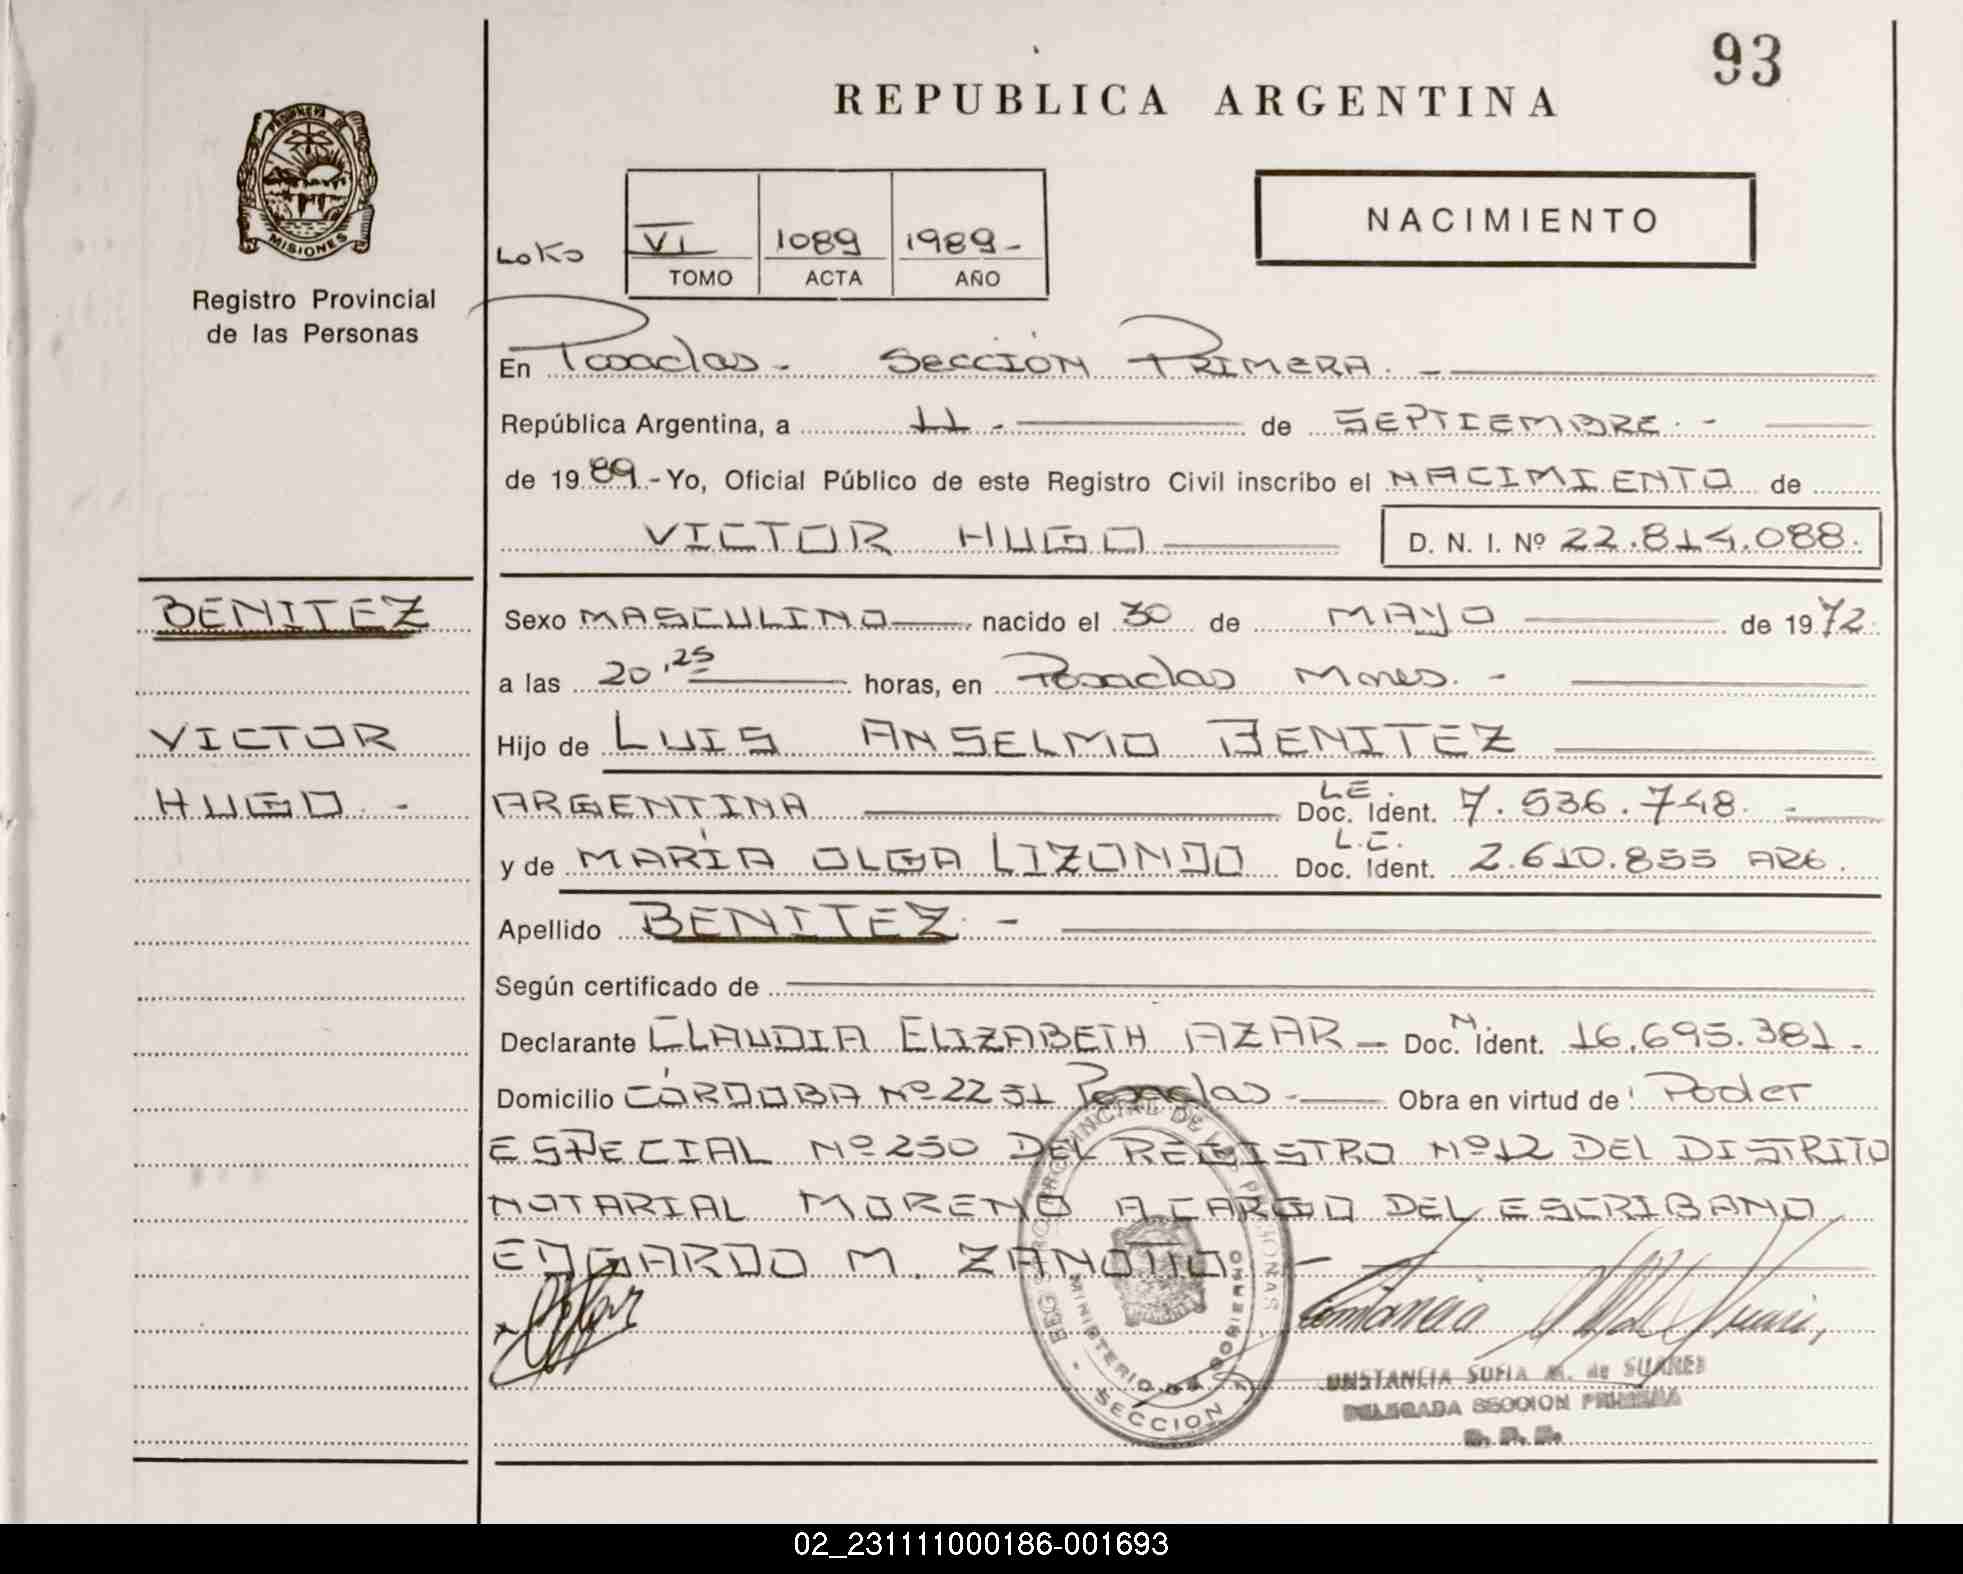 93
REPUBLICA ARGENTINA
PROVINCIA DE
MISIONES
Registro Provincial
de las Personas
NACIMIENTO
VI 1089 1989-
TOMO ACTA AÑO
En Posadas - SECCIÓN PRIMERA. -
República Argentina, a 11 - de SEPTIEMBRE. -
de 1989.- Yo, Oficial Público de este Registro Civil inscribo el NACIMIENTO de
VICTOR HUGO D. N. I. Nº 22.814.088.
BENITEZ
VICTOR
HUGO. -
Sexo MASCULINO nacido el 30 de MAYO de 1972.
a las 20,25 horas, en Posadas Mnes. -
Hijo de LUIS ANSELMO BENITEZ
ARGENTINA L.E. Doc. Ident. 7.536.748. -
y de MARÍA OLGA LIZONDO L.C. Doc. Ident. 2.610.855 ARG.
Apellido BENITEZ. -
Según certificado de
Declarante CLAUDIA ELIZABETH AZAR - Doc. N. Ident. 16.695.381 -
Domicilio CÓRDOBA Nº 2251 Posadas - Obra en virtud de: Poder
ESPECIAL Nº 250 DEL REGISTRO Nº 12 DEL DISTRITO
NOTARIAL MORENO A CARGO DEL ESCRIBANO
EDGARDO M. ZANOTTO. -
PROVINCIAL DE LAS PERSONAS
MINISTERIO DE GOBIERNO
SECCION 1
CONSTANCIA SOFIA M. de SUARES
DELEGADA SECCION PRIMERA
R. P. P.
02_231111000186-001693